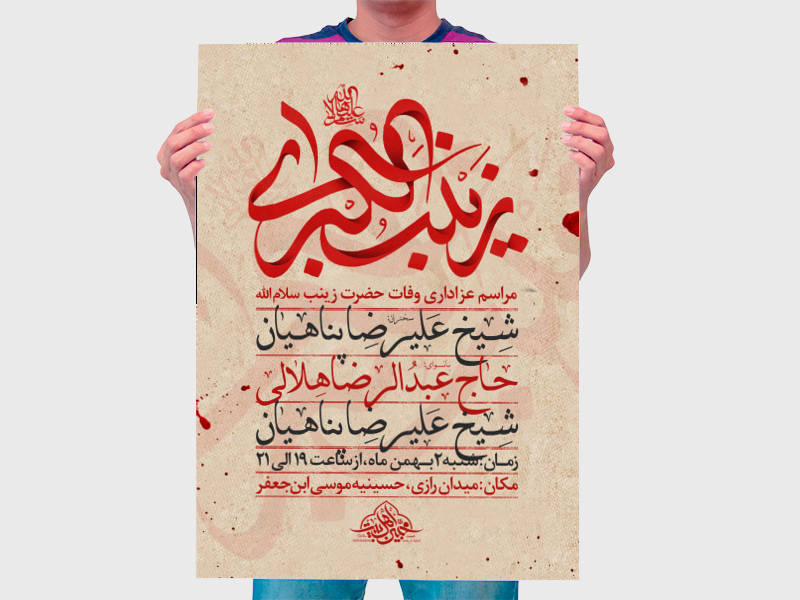 سلام الله علیها
زینب کبری
مراسم عزاداری وفات حضرت زینب سلام‌الله
سخنران:
شیخ علیرضا پناهیان
بانوای:
حاج عبدالرضا هلالی
شیخ علیرضا پناهیان
زمان: شنبه ۲ بهمن ماه، از ساعت ۱۹ الی ۲۱
مکان: میدان رازی، حسینیه موسی ابن جعفر
محبین اهل بیت